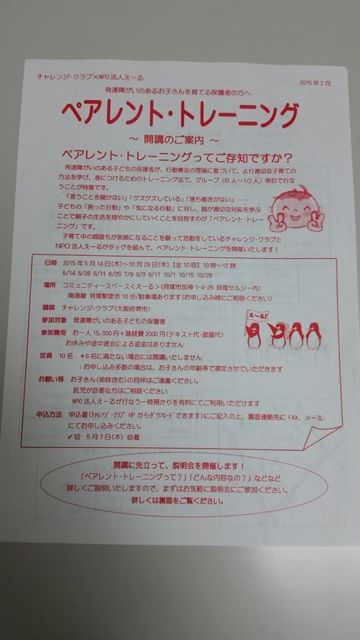 チャレンジ・クラブ×NPO法人え～る
2015年3月
発達障がいのあるお子さんを育てる保護者の方へ
ペアレント・トレーニング
～ 開講のご案内 ～
ペアレント・トレーニングってご存知ですか？
発達障がいのある子どもの保護者が、行動療法の理論に基づいて、より適切な子育ての
方法を学び、身につけるためのトレーニング法で、グループ（6人～10人）単位で行な
うことが特徴です。
「言うことを聞かない」「グズグズしている」「落ち着きがない」……
子どもの「困った行動」や「気になる行動」に対し、親が適切な対応を学ぶ
ことで親子の生活を穏やかにしていくことを目指すのが「ペアレント・トレー
ニング」です。
子育て中の親御さんが笑顔になることを願って活動しているチャレンジ・クラブと
NPO法人え～るがタッグを組んで、ペアレント・トレーニングを開催いたします！
日時 2015年5月14日（木）～10月29日（木）【全10回】10時～12時
5/14 5/28 6/11 6/25 7/9 9/3 9/17 10/1 10/15 10/29
場所 コミュニティースペース＜え～る＞（貝塚市加神1-4-26 貝塚セルシー内）
南海線 貝塚駅徒歩10分/駐車場あります（お申し込み時にご相談ください）
講師 チャレンジ・クラブ（大阪府堺市）
え～る！
参加対象 発達障がいのある子どもの保護者
参加費用 お一人 15,000円＋諸経費2000円（テキスト代・部屋代）
お休みや途中退会による返金はありません
定員 10名 *6名に満たない場合には開講いたしません
：お申し込み多数の場合は、お子さんの年齢等で選定させていただきます
お願い等 お子さん（弟妹含む）の同伴はご遠慮ください。
託児が必要な方はご相談ください
NPO法人え～るが行なう一時預かりを有料にてご利用いただけます
申込方法 申込書（チャレンジ・クラブ HPからダウンロードできます）にご記入の上、裏面連絡先にFAX、メール
にてお申し込みください。
〆切 5月7日（木）必着
開講に先立って、説明会を開催します！
「ペアレント・トレーニングって？」「どんな内容なの？」などなど
詳しくご説明いたしますので、まずはお気軽に説明会にご参加ください。
詳しくは裏面をご覧ください。